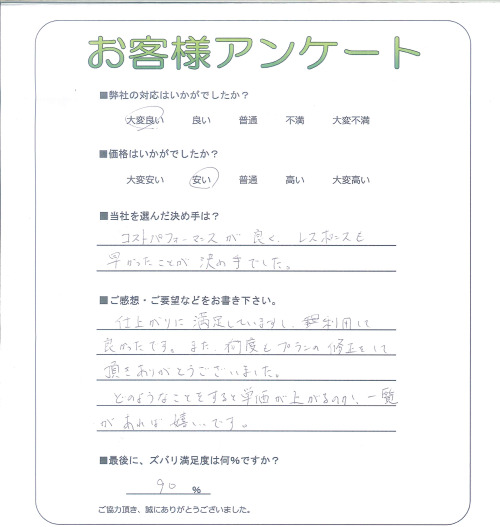 お客様アンケート
■弊社の対応はいかがでしたか？
大変良い 良い 普通 不満 大変不満
■価格はいかがでしたか？
大変安い 安い 普通 高い 大変高い
■当社を選んだ決め手は？
コストパフォーマンスが良く、レスポンスも
早かったことが決め手でした。
■ご感想・ご要望などをお書き下さい。
仕上がりに満足していますし、利用して
良かったです。また、何度もプランの修正をして
頂きありがとうございました。
どのようなことをすると単価が上がるのか、一覧
があれば嬉しいです。
■最後に、ズバリ満足度は何%ですか？
90 %
ご協力頂き、誠にありがとうございました。